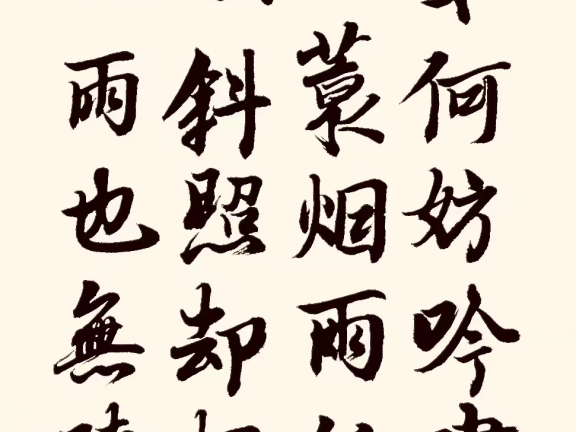 何妨吟
蓑烟雨
斜照却
雨也無